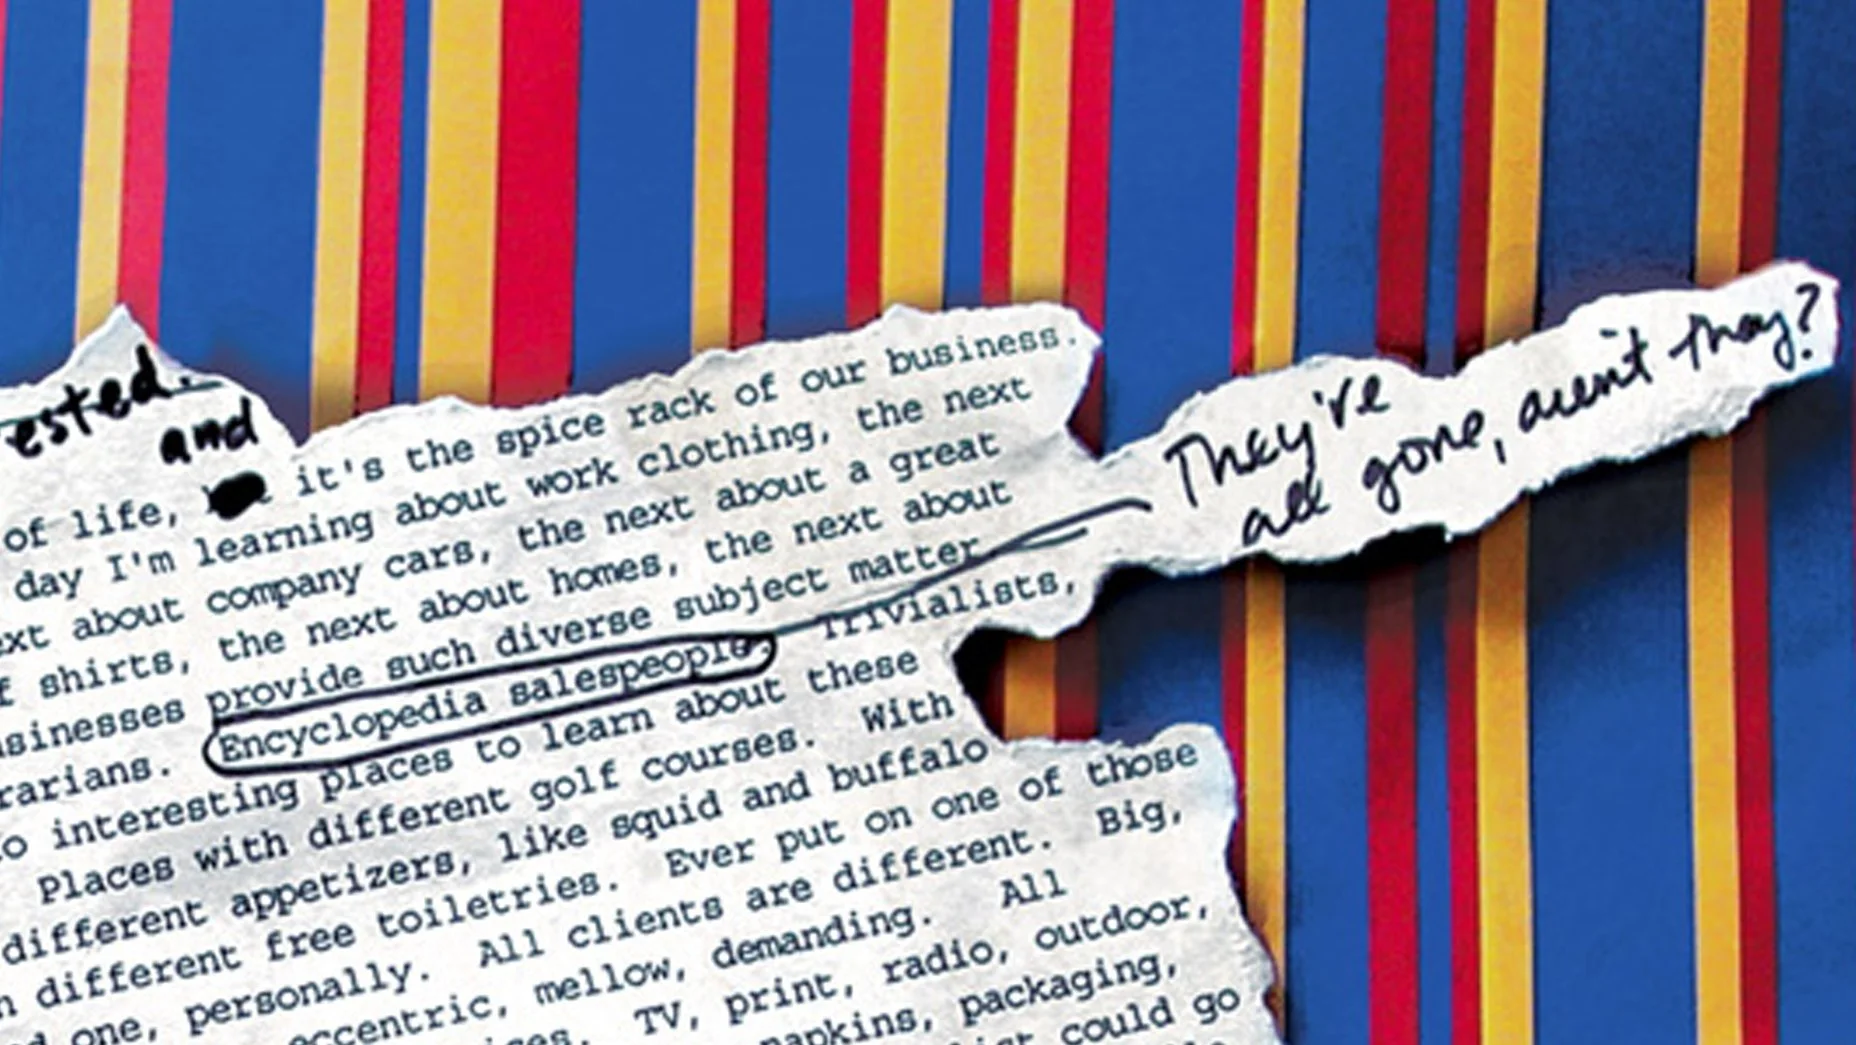 ested.
and
of life, it's the spice rack of our business.
day I'm learning about work clothing, the next
about company cars, the next about a great
shirts, the next about homes, the next about
provide such diverse subject matter
Encyclopedia salespeople. Trivialists,
interesting places to learn about these
Places with different golf courses. With
different appetizers, like squid and buffalo
different free toiletries. Ever put on one of those
one, personally. All clients are different. Big,
eccentric, mellow, demanding. All
TV, print, radio, outdoor,
napkins, packaging,
could go
They're
all gone, aren't they?